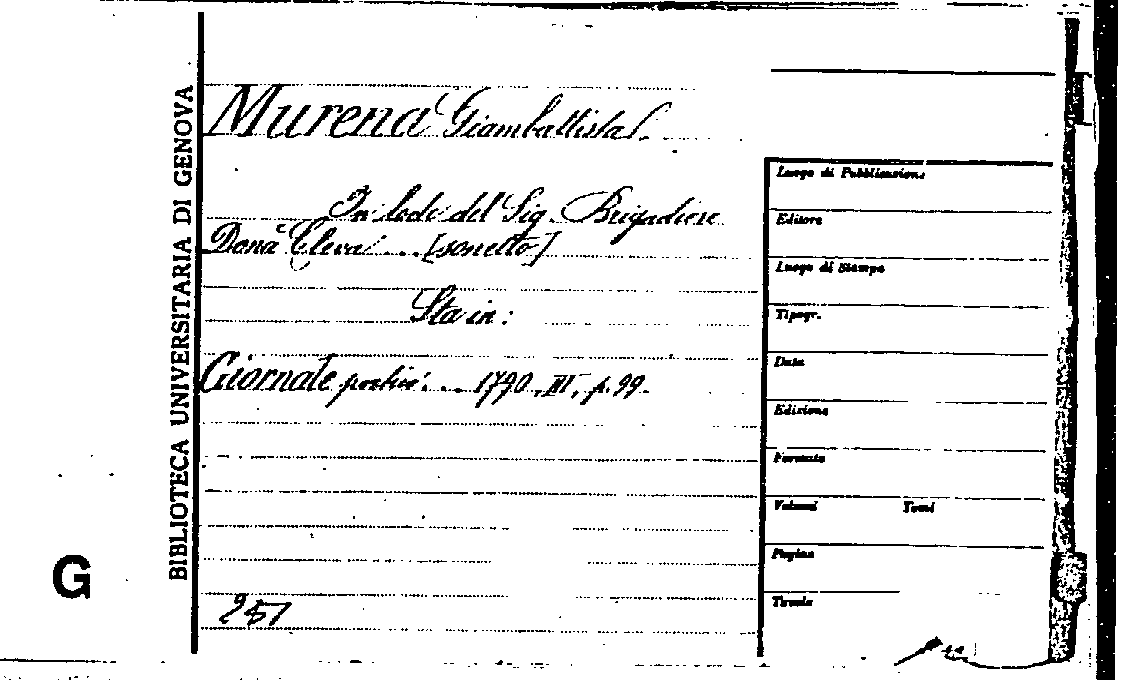 Murena Giamballista
In lode del Sig. Brigadiere
Donà Cleva ... [sonetto]
Sta in:
Giornale poetico ... 1790. III, p. 99.
251
BIBLIOTECA UNIVERSITARIA DI GENOVA
G
Luogo di Pubblicazione
Editore
Luogo di Stampa
Tipogr.
Data
Edizione
Formato
Volumi Tomi
Pagine
Tavole